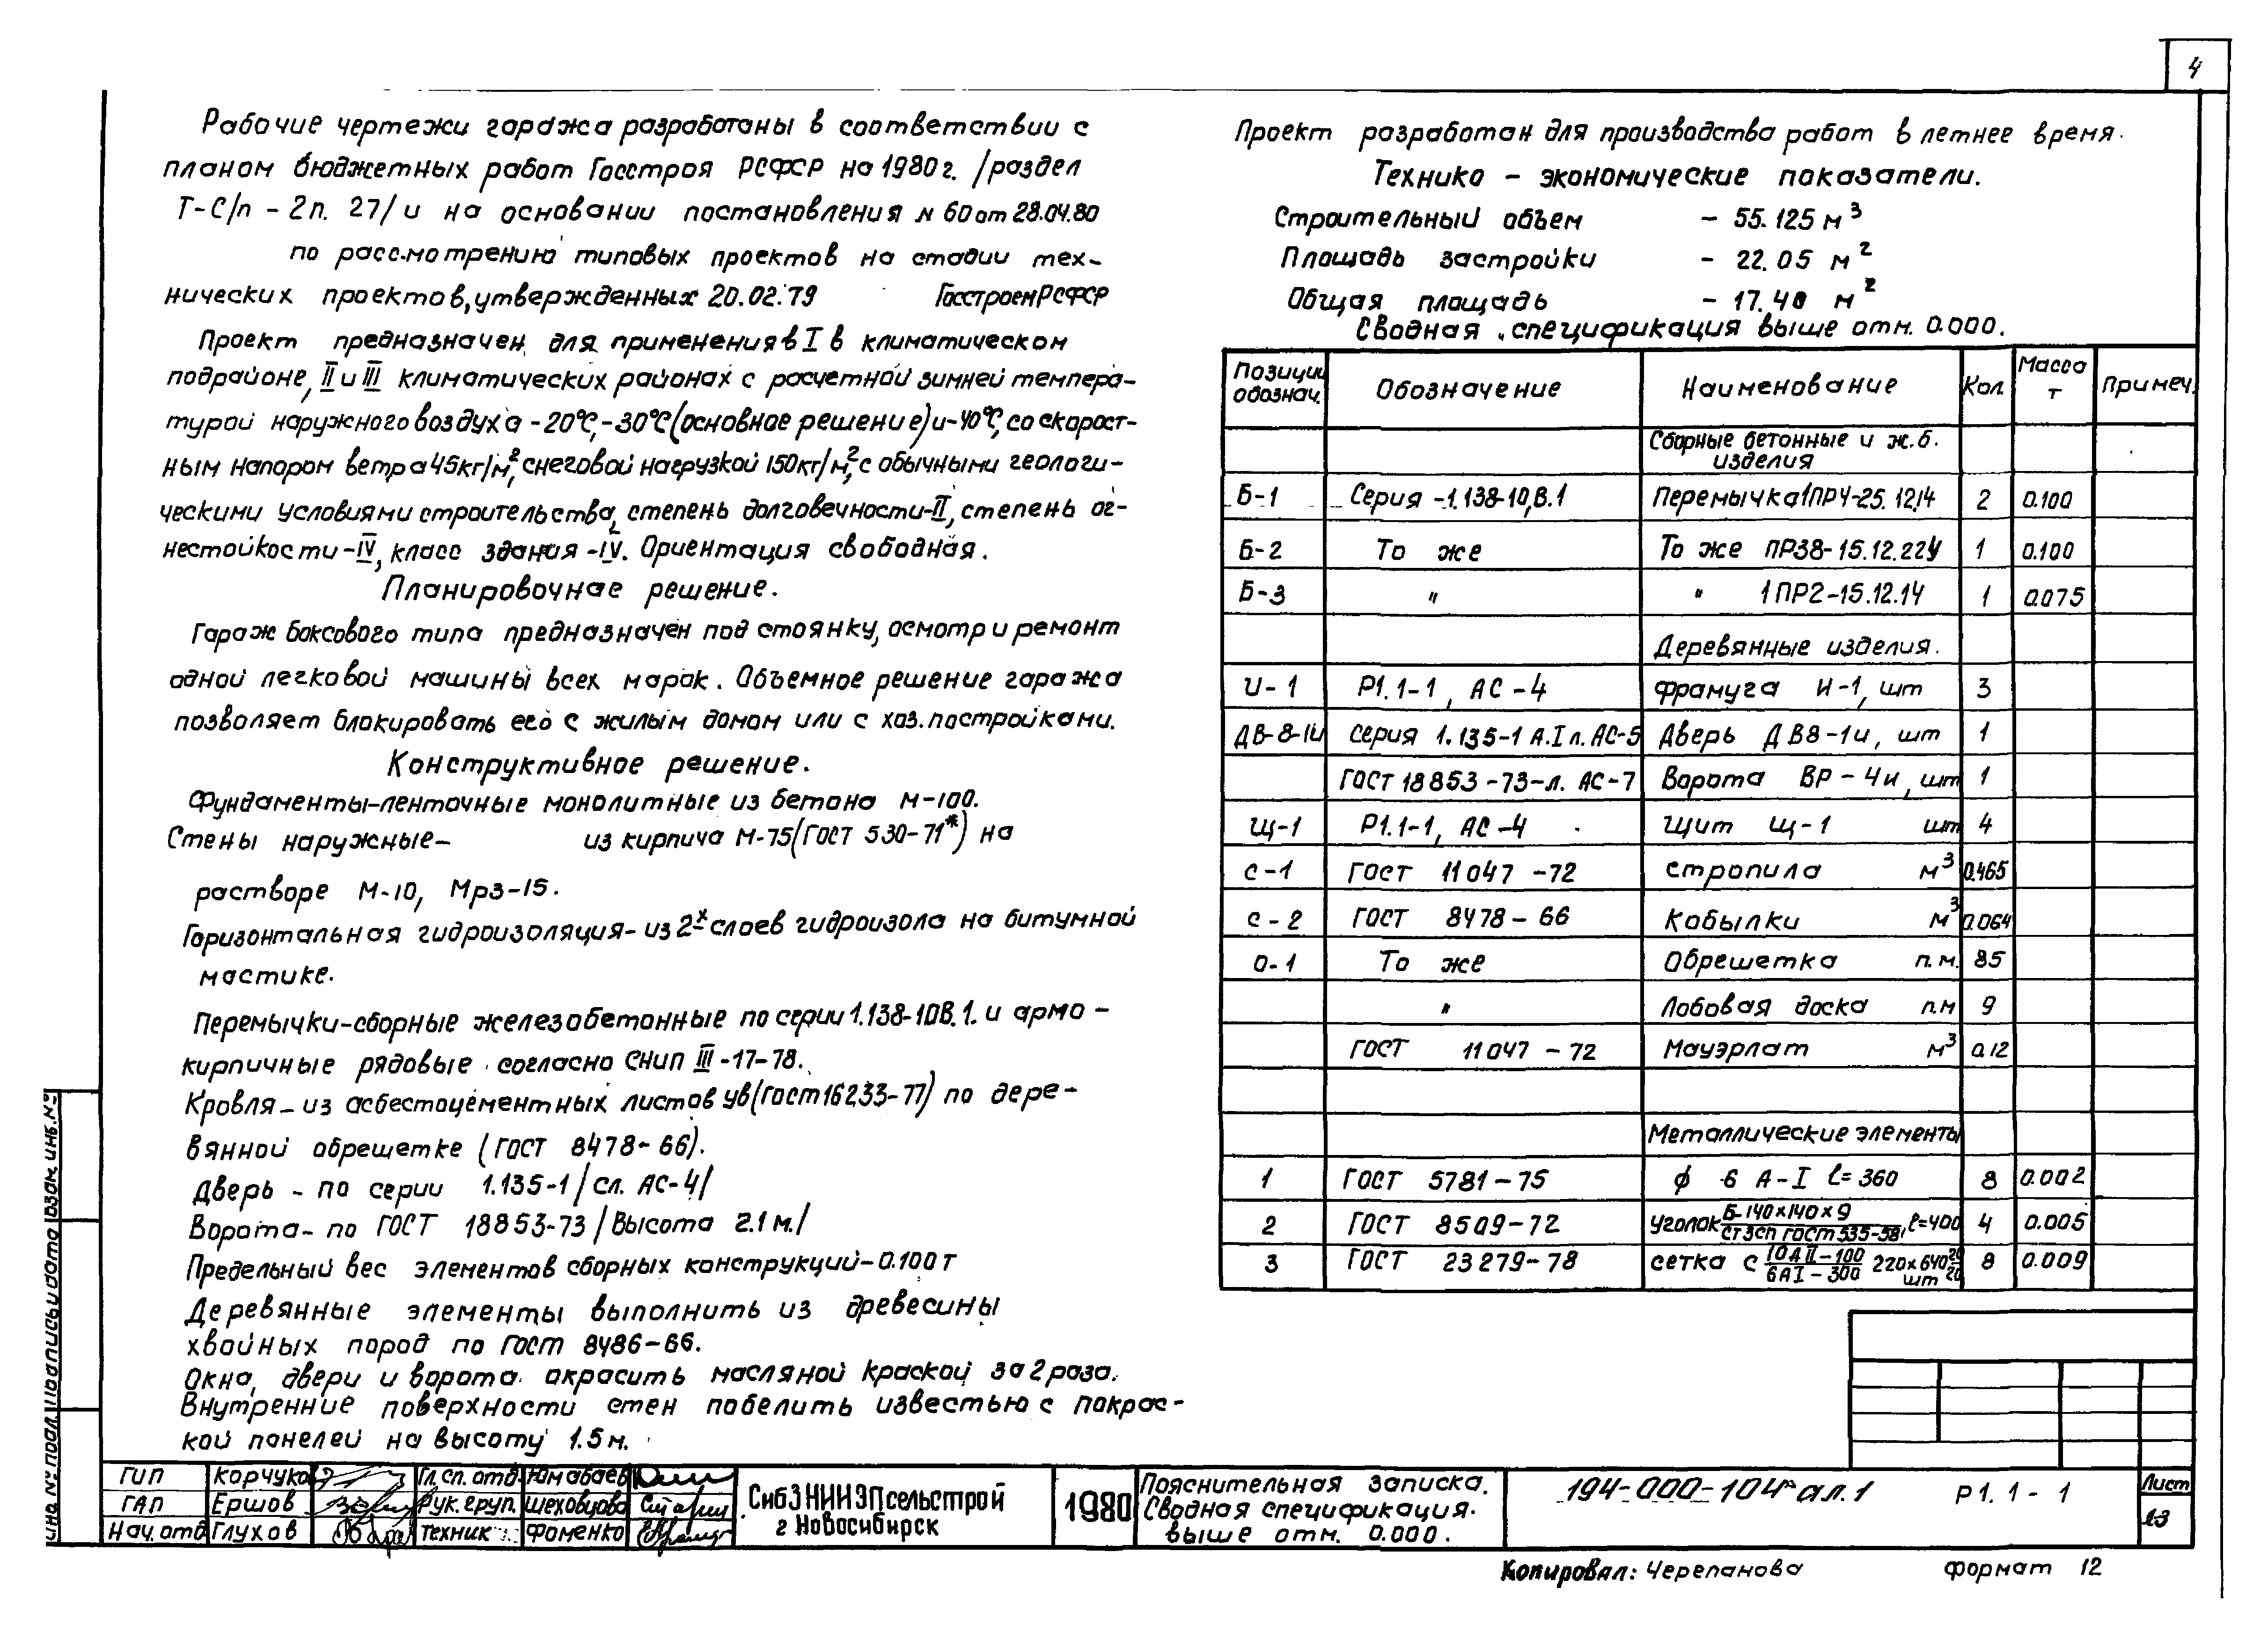 4
Рабочие чертежи гаража разработаны в соответствии с
планом бюджетных работ Госстроя РСФСР на 1980г. /раздел
Т-С/п - 2п. 27/ и на основании постановления № 60 от 28.04.80
по рассмотрению типовых проектов на стадии тех-
нических проектов, утвержденных 20.02.79 Госстроем РСФСР
Проект предназначен для применения в I в климатическом
подрайоне, II и III климатических районах с расчетной зимней темпера-
турой наружного воздуха -20°С, -30°С (основное решение) и -40°С, со скорост-
ным напором ветра 45кг/м², снеговой нагрузкой 150кг/м², с обычными геологи-
ческими условиями строительства, степень долговечности-II, степень ог-
нестойкости-IV, класс здания -IV. Ориентация свободная.
Планировочное решение.
Гараж боксового типа предназначен под стоянку, осмотр и ремонт
одной легковой машины всех марок. Объемное решение гаража
позволяет блокировать его с жилым домом или с хоз. постройками.
Конструктивное решение.
Фундаменты-ленточные монолитные из бетона М-100.
Стены наружные- из кирпича М-75 (ГОСТ 530-71*) на
растворе М-10, Мрз-15.
Горизонтальная гидроизоляция- из 2х слоев гидроизола на битумной
мастике.
Перемычки-сборные железобетонные по серии 1.138-10В.1. и армо-
кирпичные рядовые согласно СНиП III-17-78.
Кровля-из асбестоцементных листов УВ (ГОСТ 16233-77) по дере-
вянной обрешетке (ГОСТ 8478-66).
Дверь - по серии 1.135-1 /сл. АС-4/
Ворота- по ГОСТ 18853-73 /высота 2.1м./
Предельный вес элементов сборных конструкций-0.100т
Деревянные элементы выполнить из древесины
хвойных пород по ГОСТ 8486-66.
Окна, двери и ворота окрасить масляной краской за 2 раза.
Внутренние поверхности стен побелить известью с покрас-
кой панелей на высоту 1.5м.
Проект разработан для производства работ в летнее время.
Технико - экономические показатели.
Строительный объем - 55.125 м³
Площадь застройки - 22.05 м²
Общая площадь - 17.40 м²
Сводная спецификация выше отм. 0.000.
Позиции обознач. Обозначение Наименование Кол. Масса т Примеч.
Сборные бетонные и ж.б.
изделия
Б-1 Серия -1.138-10, В.1 Перемычка 1ПР4-25.12.14 2 0.100
Б-2 То же То же ПР38-15.12.22У 1 0.100
Б-3 " " 1ПР2-15.12.14 1 0.075
Деревянные изделия.
И-1 Р1.1-1, АС-4 Фрамуга И-1, шт 3
ДВ-8-1и Серия 1.135-1 А.I л. АС-5 Дверь ДВ8-1и, шт 1
ГОСТ 18853-73-л. АС-7 Ворота ВР-4и, шт 1
Щ-1 Р1.1-1, АС-4 Щит Щ-1 шт 4
С-1 ГОСТ 11047-72 Стропила м³ 0.465
С-2 ГОСТ 8478-66 Кобылки м³ 0.064
О-1 То же Обрешетка п.м. 85
" Лобовая доска п.м 9
ГОСТ 11047-72 Мауэрлат м³ 0.12
Металлические элементы
1 ГОСТ 5781-75 ϕ 6 А-I ℓ=360 8 0.002
2 ГОСТ 8509-72 уголок Б-140×140×9 / Ст3сп ГОСТ 535-58, ℓ=400 4 0.005
3 ГОСТ 23279-78 сетка С 10АII-100 / 6АI-300 220×640 20/20 шт 8 0.009
Инв. № подл. Подпись и дата Взам. инв. №
ГИП Корчуко Гл.сп.отд. Юмабаев
ГАП Ершов Рук.груп. Шеховцова
Нач.отд Глухов Техник Фоменко
СибЗНИИЭПсельстрой
г Новосибирск
1980
Пояснительная записка.
Сводная спецификация.
выше отм. 0.000.
194-000-104 ал.1
Р1.1-1
Лист
Копировал: Черепанова
формат 12